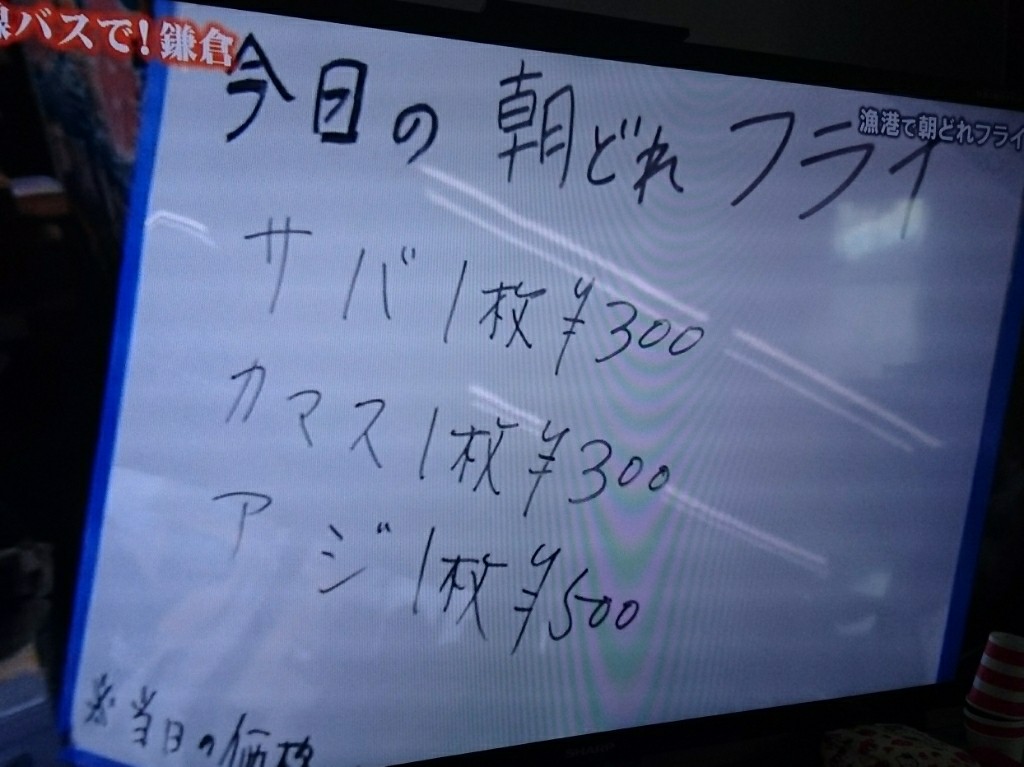 線バスで!鎌倉
漁港で朝どれフライ
今日の朝どれフライ
サバ1枚¥300
カマス1枚¥300
アジ1枚¥500
※当日の価格
SHARP